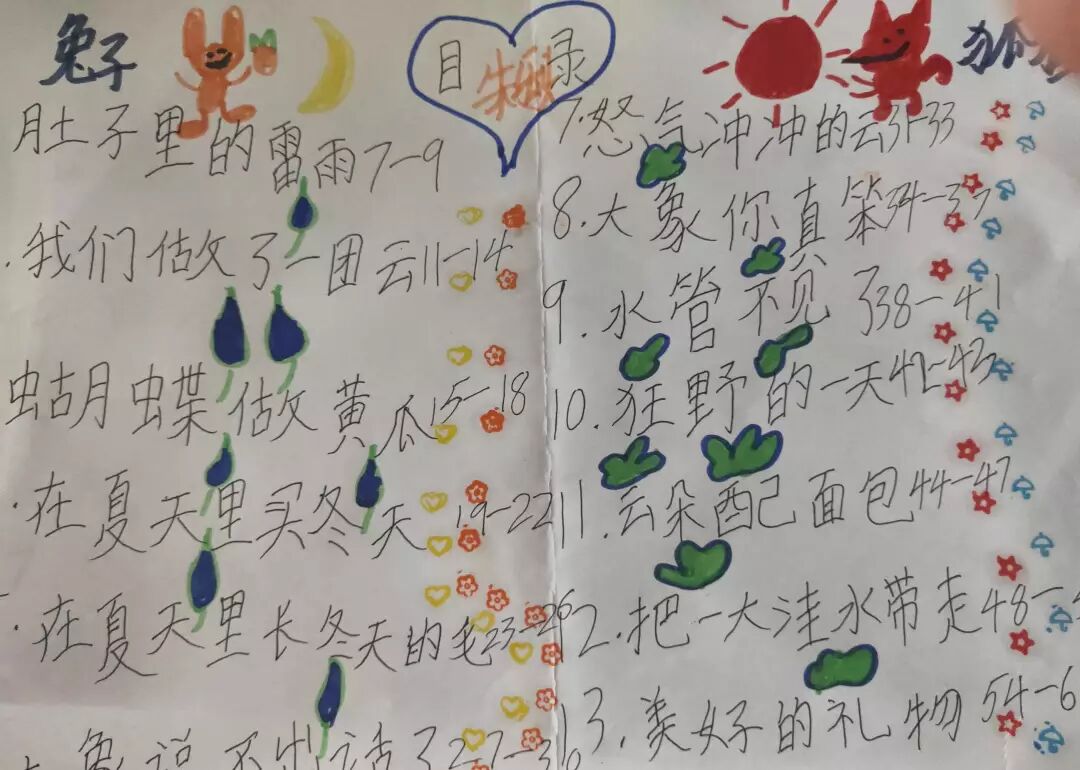 兔子
目录
肚子里的雷雨7-9
我们做了一团云11-14
蝴蝶做黄瓜15-18
在夏天里买冬天19-22
在夏天里长冬天的毛23-26
兔说不出话了27-30
狐狸
7.怒气冲冲的云31-33
8.大象你真笨34-37
9.水管不见了38-41
10.狂野的一天42-43
11.云朵配面包44-47
12.把一大洼水带走48-
13.美好的礼物54-6